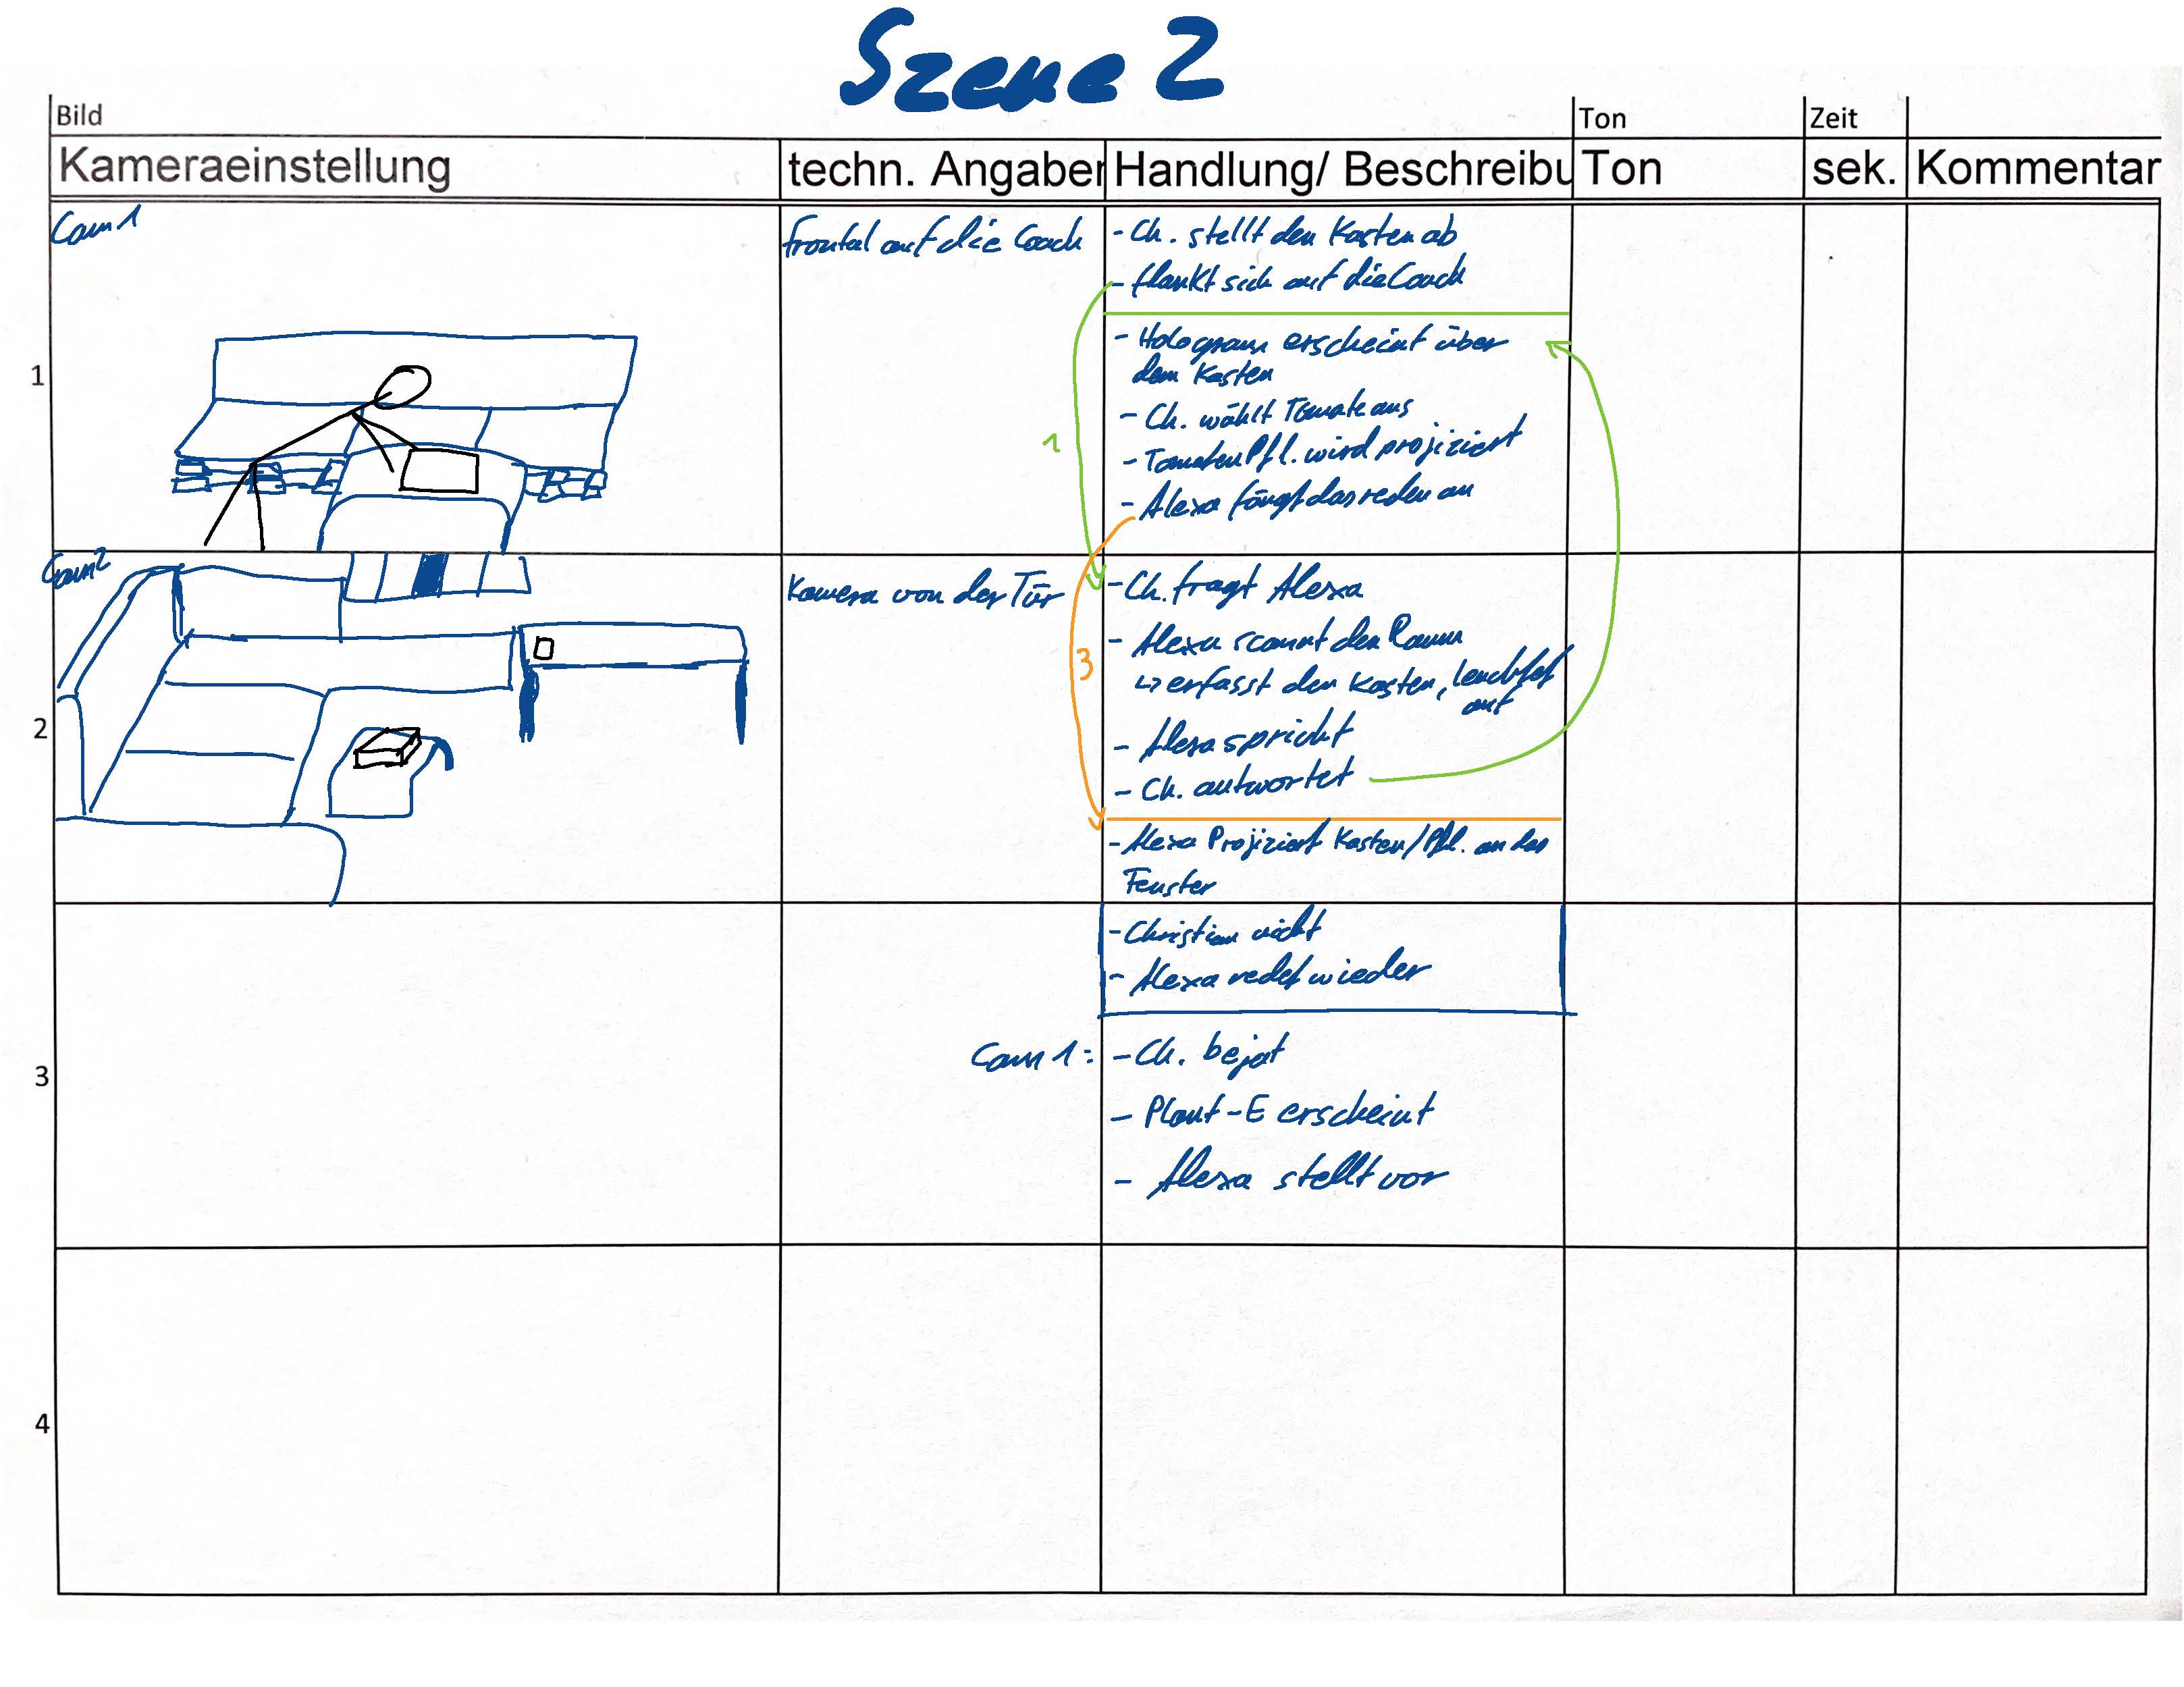 Szene 2
Bild
Ton
Zeit
Kameraeinstellung
techn. Angaben
Handlung/ Beschreibu
Ton
sek.
Kommentar
1
Cam 1
frontal auf die Coach
- Ch. stellt den Kasten ab
- flankt sich auf die Coach
- Hologram erscheint über
dem Kasten
- Ch. wählt Tomate aus
- TomatenPfl. wird projiziert
- Alexa fängt das reden an
1
2
Cam2
Kamera von der Tür
- Ch. fragt Alexa
- Alexa scannt den Raum
↳ erfasst den Kasten, leuchtet
auf
- Alexa spricht
- Ch. antwortet
3
- Alexa Projiziert Kasten/Pfl. an das
Fenster
3
- Christian nickt
- Alexa redet wieder
Cam 1: - Ch. bejat
- Plant-E erscheint
- Alexa stellt vor
4